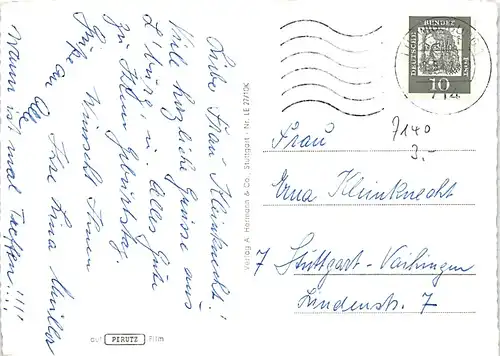 Liebe Frau Kleinknecht!
Viele herzliche Grüsse aus
L'burg u. alles Gute
zu Ihrem Geburtstag
Wünscht Ihnen
Ihre Lina Müller
Grüße
an alle
Wann ist mal Treffen!!!!
Verlag A. Hermann & Co., Stuttgart - Nr. LE
auf PERUTZ Film
DEUTSCHE
BUNDES
POST
10
7140
3.-
Frau
Erna Kleinknecht
7 Stuttgart-Vaihingen
Lindenstr. 7